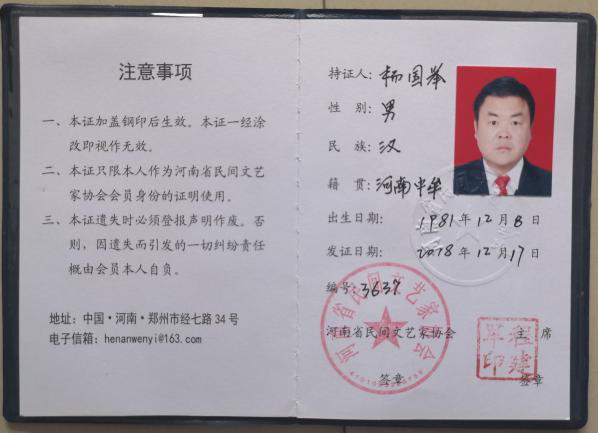 注意事项
一、本证加盖钢印后生效。本证一经涂
改即视作无效。
二、本证只限本人作为河南省民间文艺
家协会会员身份的证明使用。
三、本证遗失时必须登报声明作废。否
则，因遗失而引发的一切纠纷责任
概由会员本人自负。
地址：中国·河南·郑州市经七路34号
电子信箱：henanwenyi@163.com
持证人：杨国举
性别：男
民族：汉
籍贯：河南中牟
出生日期：1981年12月8日
发证日期：2018年12月17日
编号：3637
河南省民间文艺家协会
主席
河南省民间文艺家协会
程建军印
签章
签章